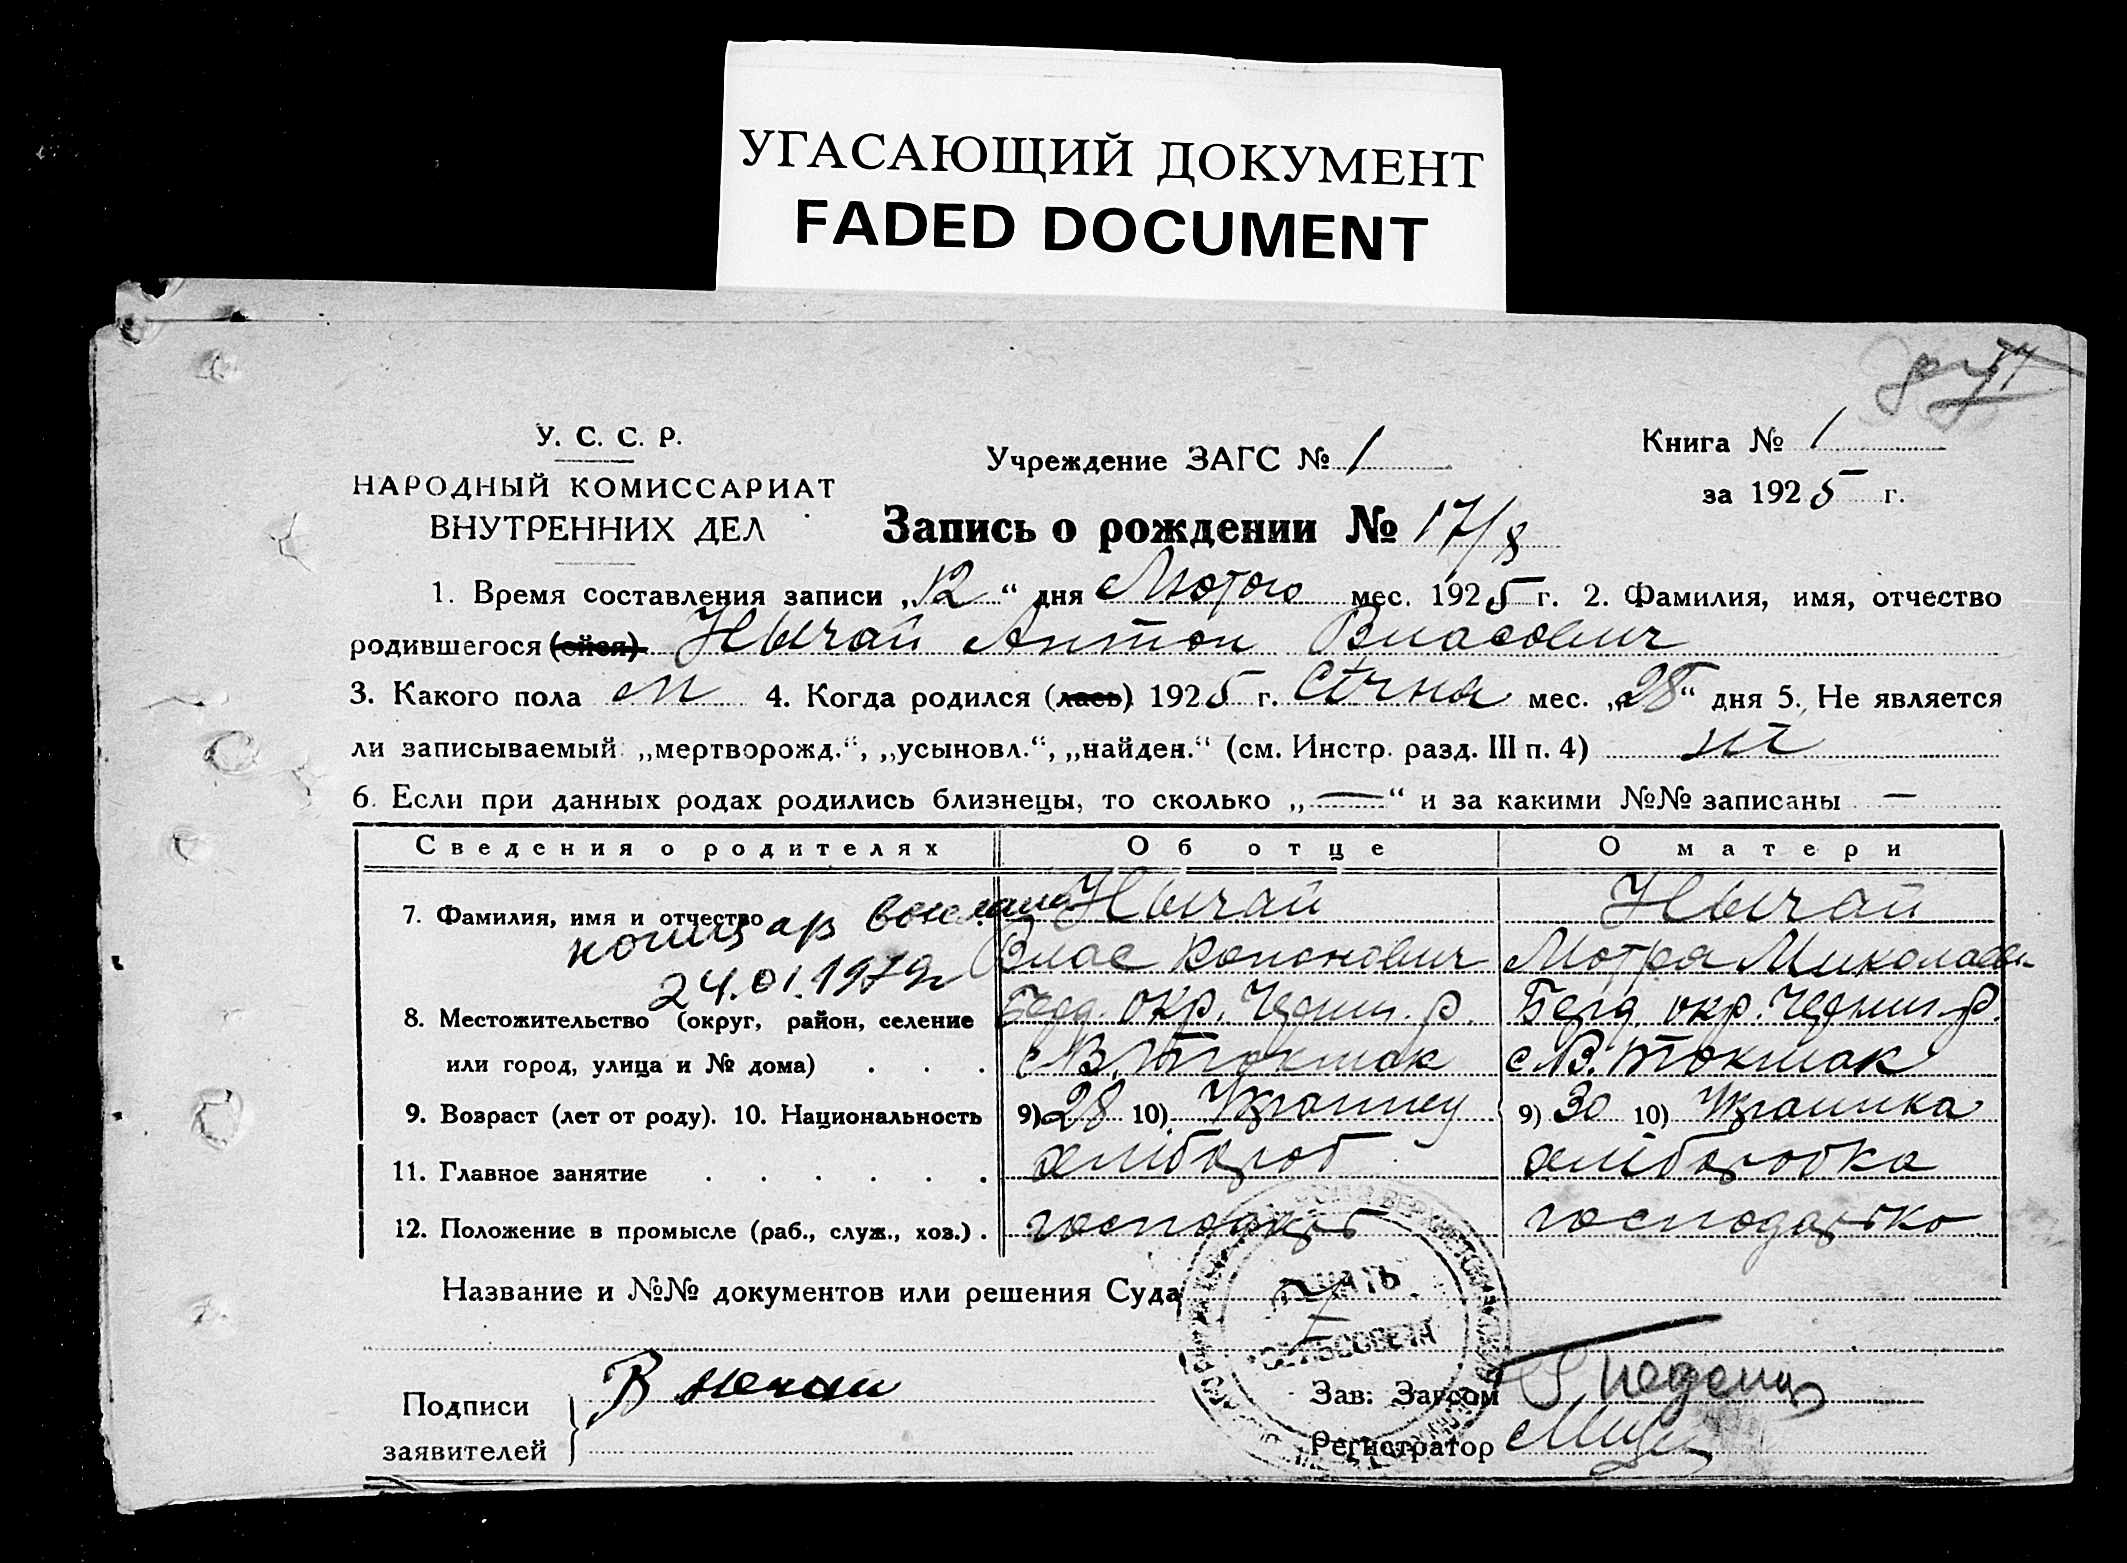 УГАСАЮЩИЙ ДОКУМЕНТ
FADED DOCUMENT
У. С. С. Р.
НАРОДНЫЙ КОМИССАРИАТ
ВНУТРЕННИХ ДЕЛ
Учреждение ЗАГС № 1
Книга № 1
за 1925 г.
Запись о рождении № 17/8
1. Время составления записи „12“ дня Лютого мес. 1925 г. 2. Фамилия, имя, отчество
родившегося (ейся) Нычай Антон Власович
3. Какого пола м 4. Когда родился (лась) 1925 г. Січня мес. „28“ дня 5. Не является
ли записываемый „мертворожд.“, „усыновл.“, „найден.“ (см. Инстр. разд. III п. 4) ні
6. Если при данных родах родились близнецы, то сколько „—“ и за какими №№ записаны —
Сведения о родителях Об отце О матери
7. Фамилия, имя и отчество Нычай Нычай
24.01.1979г Влас Мотря Миколаев.
8. Местожительство (округ, район, селение Берд. окр. Черниг. р. Берд. окр. Черниг. р.
или город, улица и № дома) . . . с В. Токмак с В. Токмак
9. Возраст (лет от роду). 10. Национальность 9) 28 10) Украинец 9) 30 10) Украинка
11. Главное занятие . . . . . . хлібороб хліборобка
12. Положение в промысле (раб., служ., хоз.) . господарь господарька
Название и №№ документов или решения Суда
ПЕЧАТЬ
СЕЛЬСОВЕТА
Подписи
заявителей
В Нечай
Зав. Загсом
Регистратор